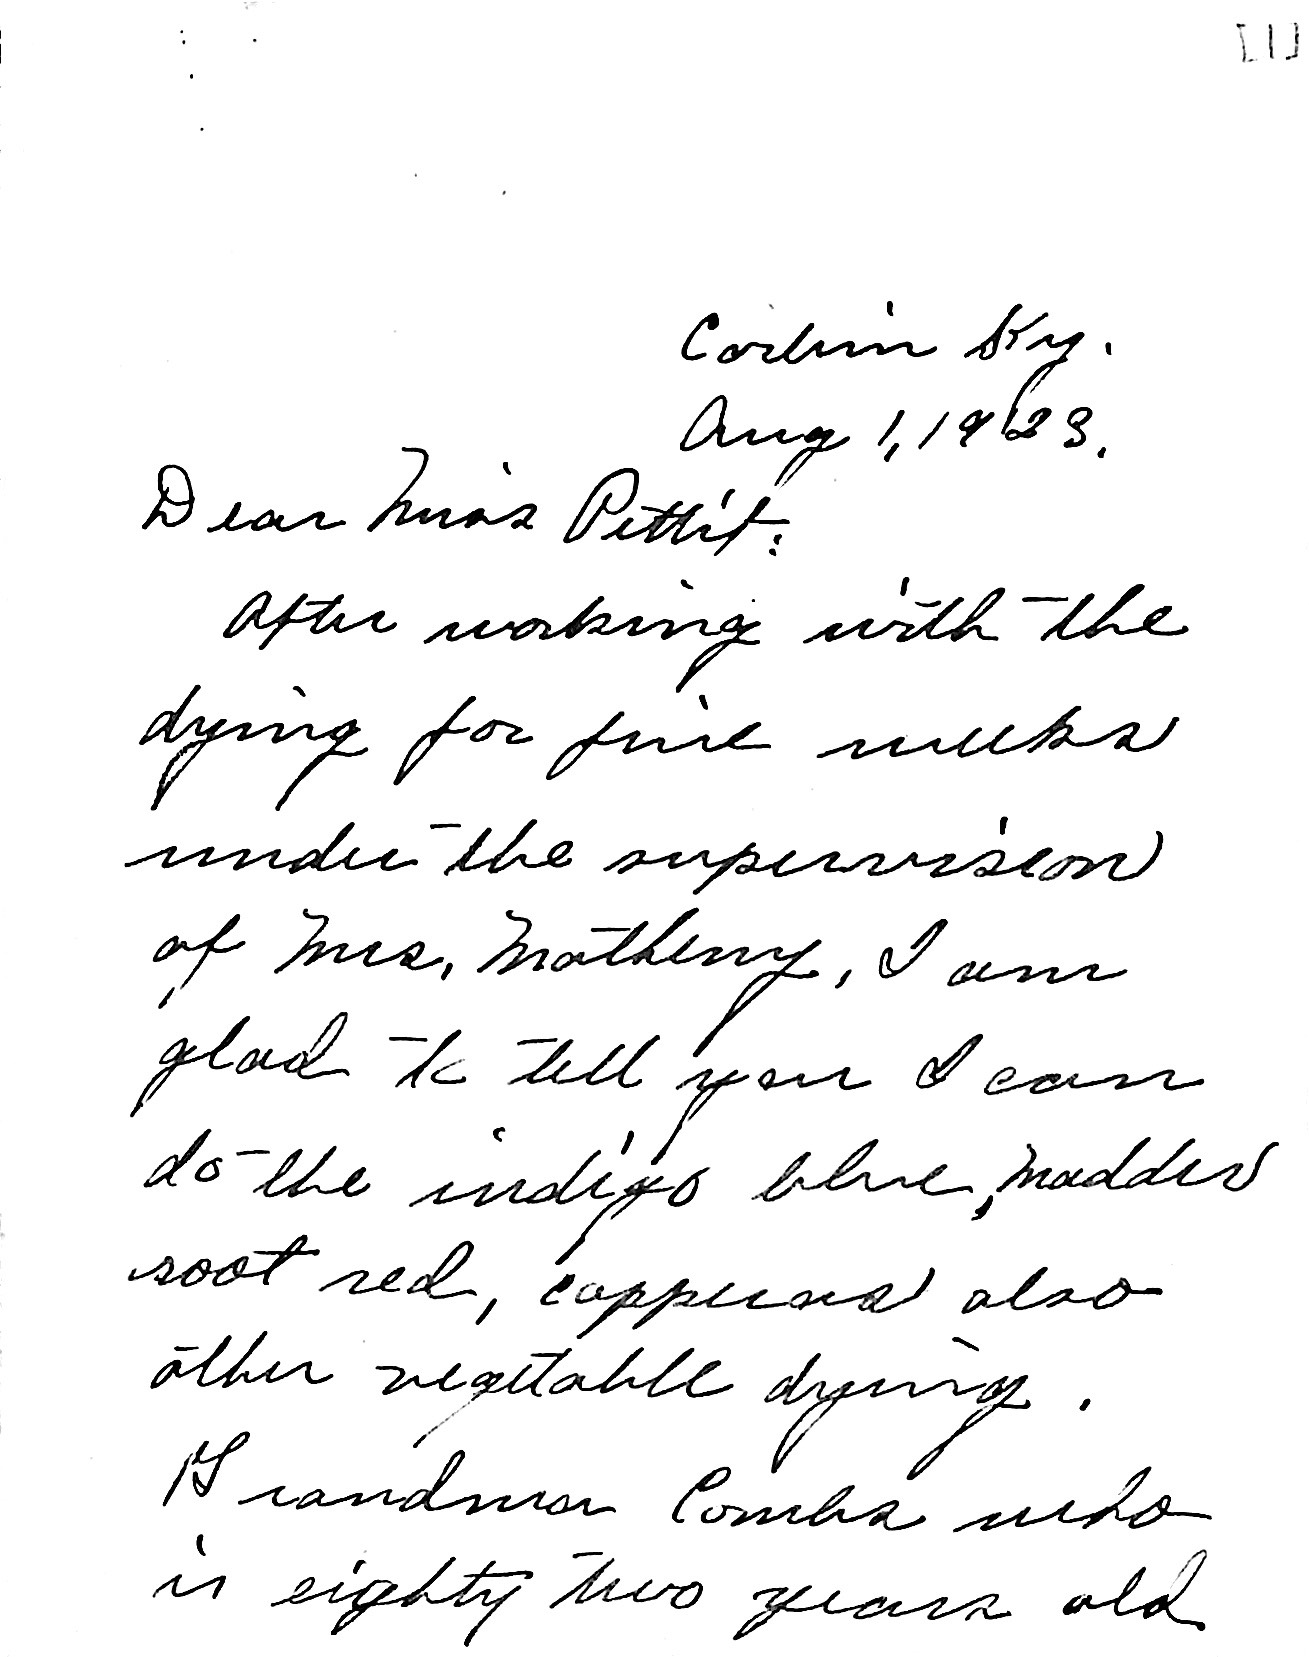 [1]
Corbin Ky.
Aug 1, 1923.
Dear Miss Pettit:
After working with the
dying for five weeks
under the supervision
of Mrs. Matheny, I am
glad to tell you I can
do the indigo blue, madder
root red, copperas also
other vegetable dying.
Grandma Combs who
is eighty two years old